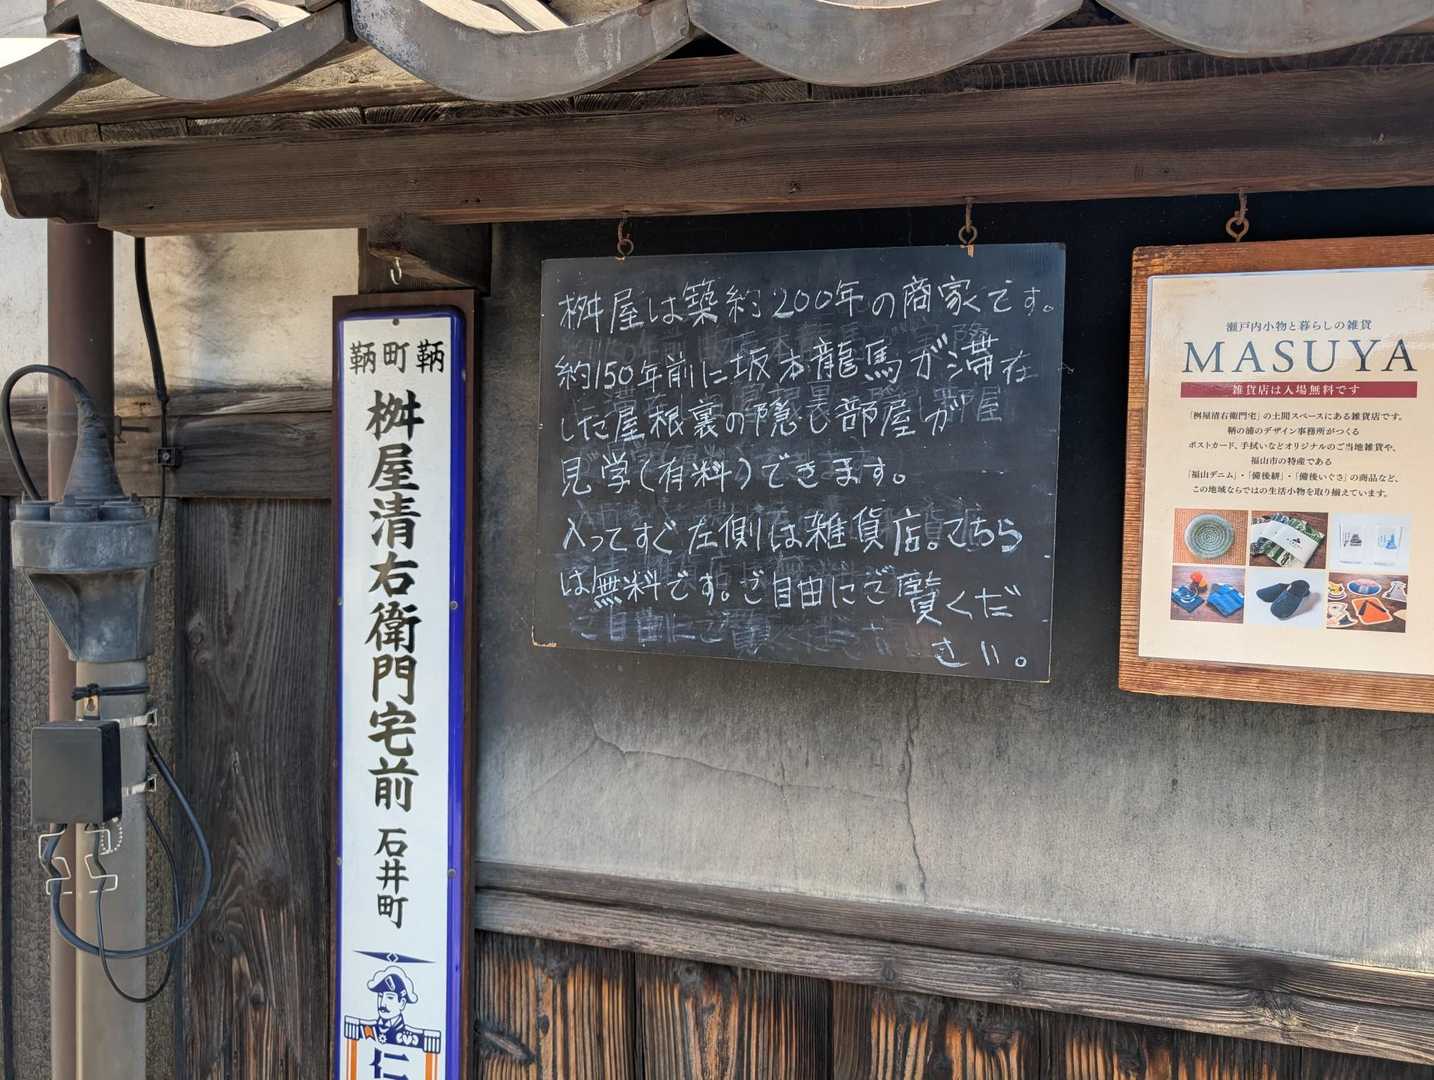 鞆町鞆
桝屋清右衛門宅前
石井町
仁
桝屋は築約200年の商家です。
約150年前に坂本龍馬が滞在
した屋根裏の隠し部屋が
見学(有料)できます。
入ってすぐ左側は雑貨店。こちら
は無料です。ご自由にご覧くだ
さい。
瀬戸内小物と暮らしの雑貨
MASUYA
雑貨店は入場無料です
「桝屋清右衛門宅」の土間スペースにある雑貨店です。
鞆の浦のデザイン事務所がつくる
ポストカード、手拭いなどオリジナルのご当地雑貨や、
福山市の特産である
「福山デニム」・「備後絣」・「備後いぐさ」の商品など、
この地域ならではの生活小物を取り揃えています。